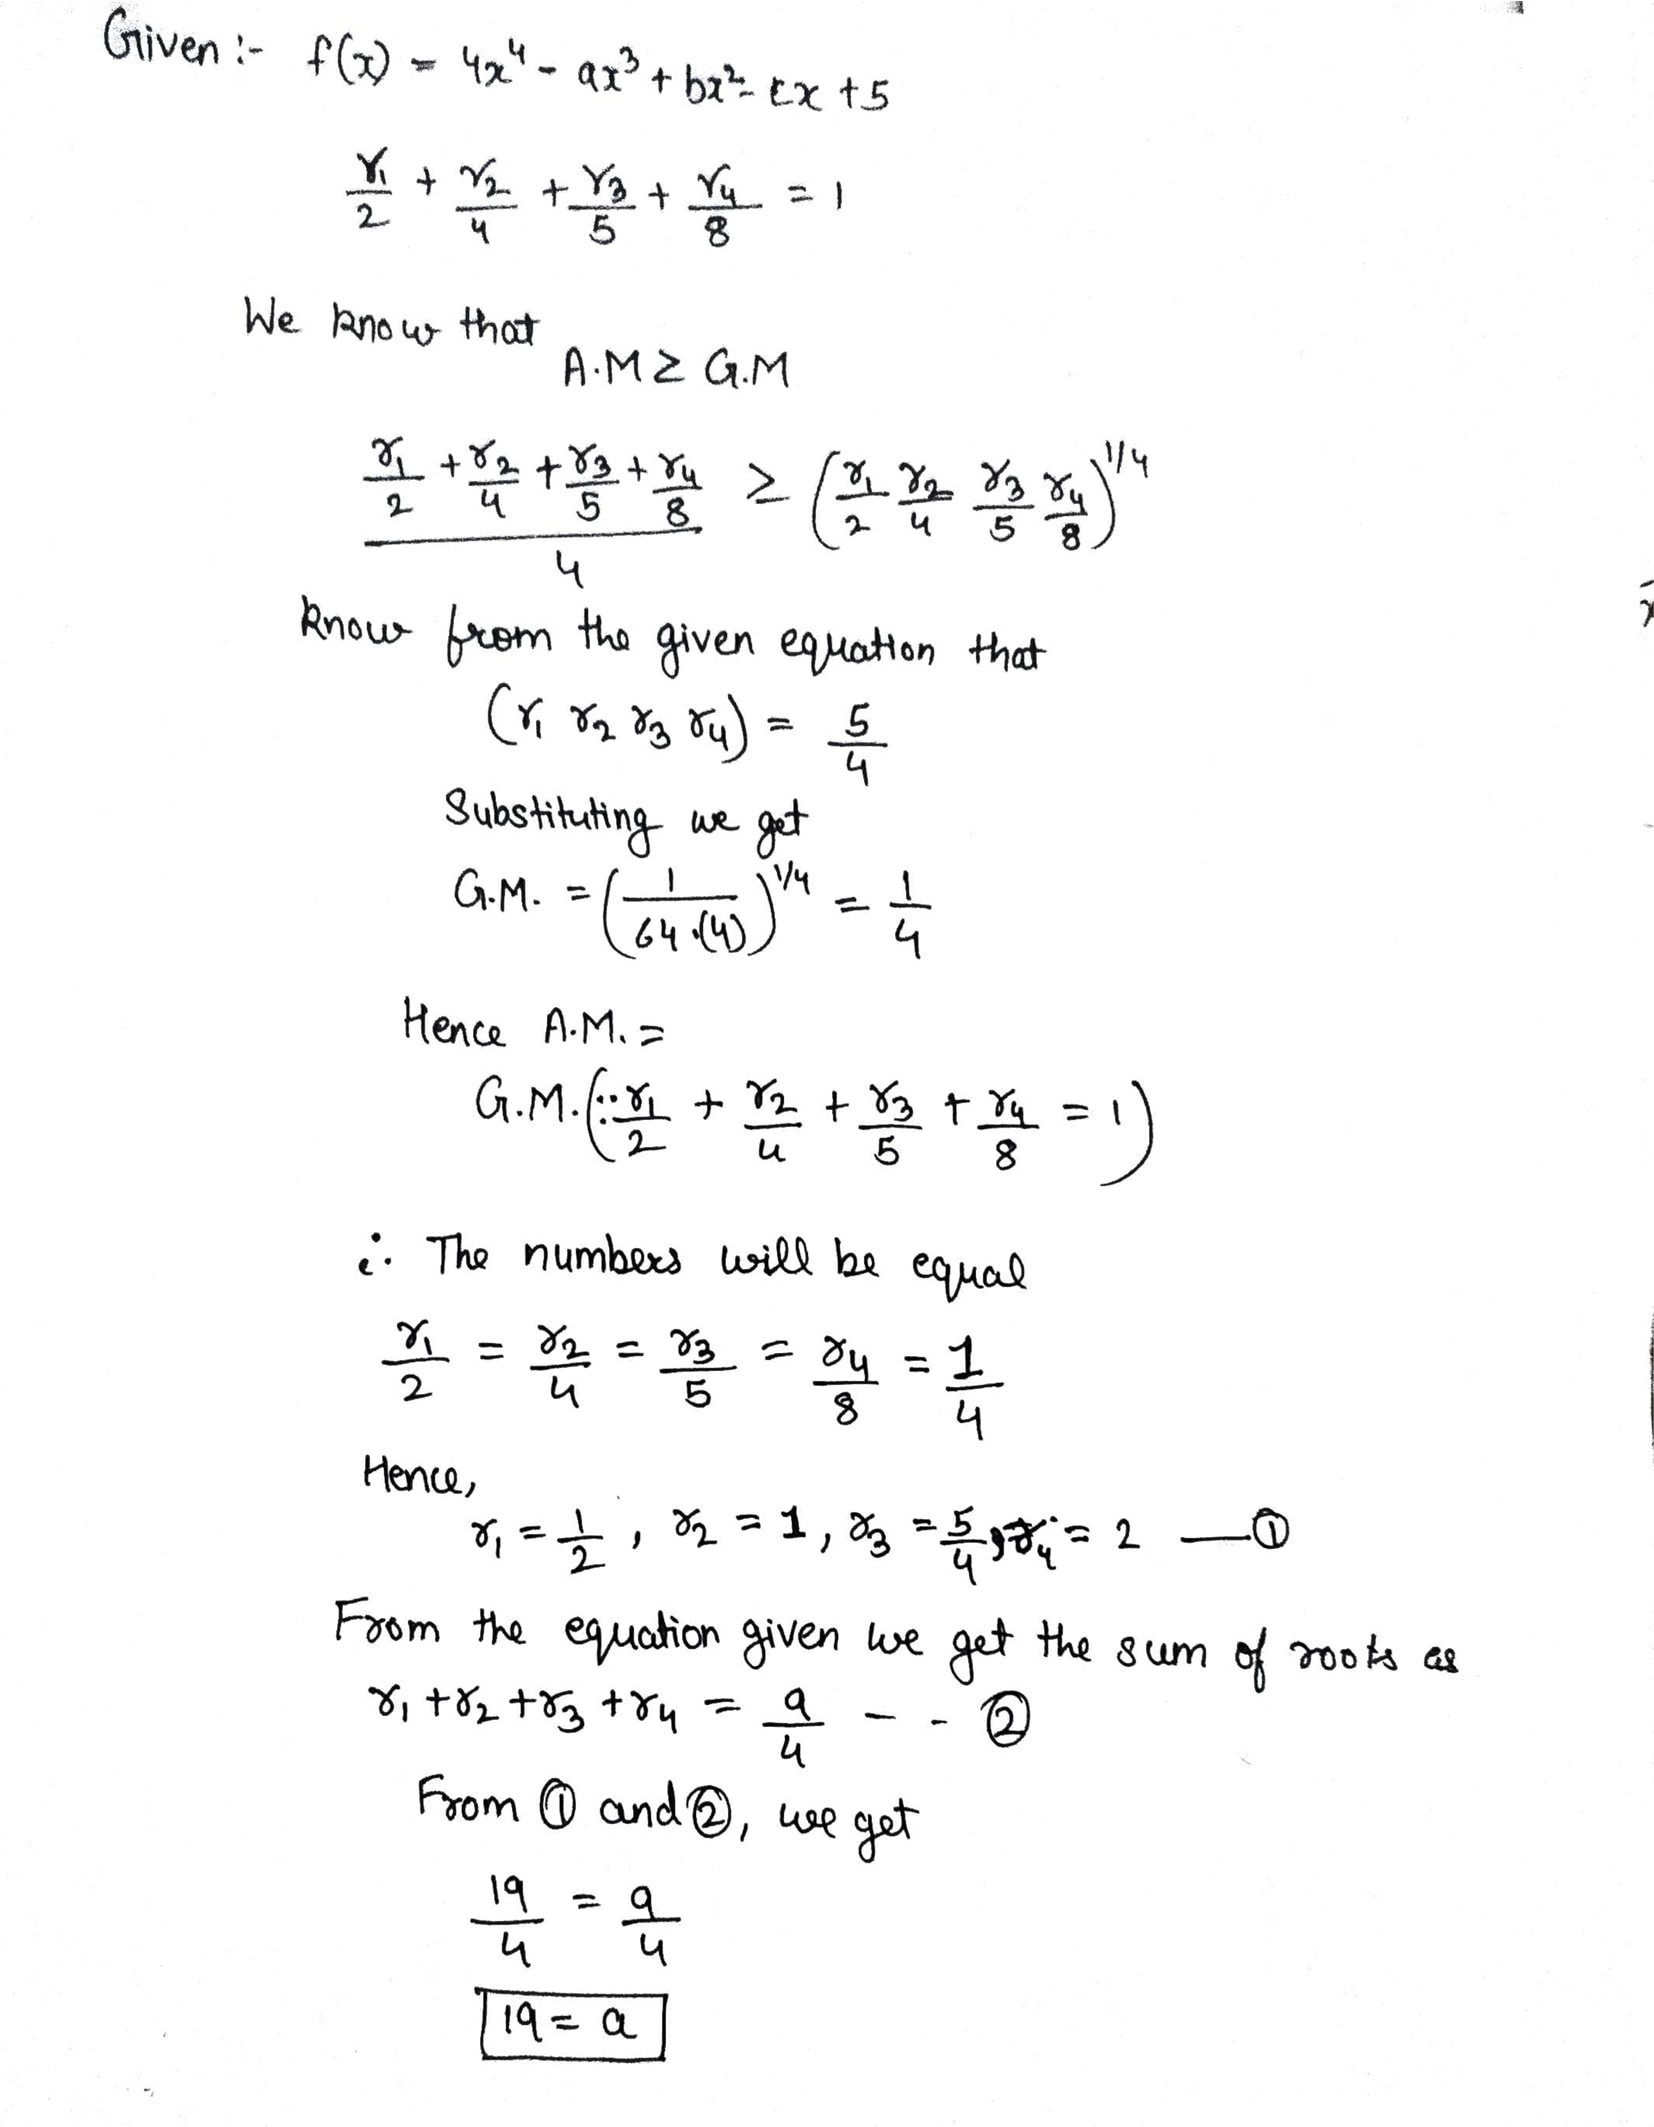 Given :- f(x) = 4x⁴ - ax³ + bx² - cx + 5
r₁/2 + r₂/4 + r₃/5 + r₄/8 = 1
We know that
A.M ≥ G.M
(r₁/2 + r₂/4 + r₃/5 + r₄/8)/4 ≥ (r₁/2 r₂/4 r₃/5 r₄/8)^1/4
know from the given equation that
(r₁ r₂ r₃ r₄) = 5/4
Substituting we get
G.M. = (1/64.(4))^1/4 = 1/4
Hence A.M. =
G.M. (∵ r₁/2 + r₂/4 + r₃/5 + r₄/8 = 1)
∴ The numbers will be equal
r₁/2 = r₂/4 = r₃/5 = r₄/8 = 1/4
Hence,
r₁ = 1/2 , r₂ = 1, r₃ = 5/4, r₄ = 2 — ①
From the equation given we get the sum of roots as
r₁ + r₂ + r₃ + r₄ = a/4 - - ②
From ① and ②, we get
19/4 = a/4
19 = a